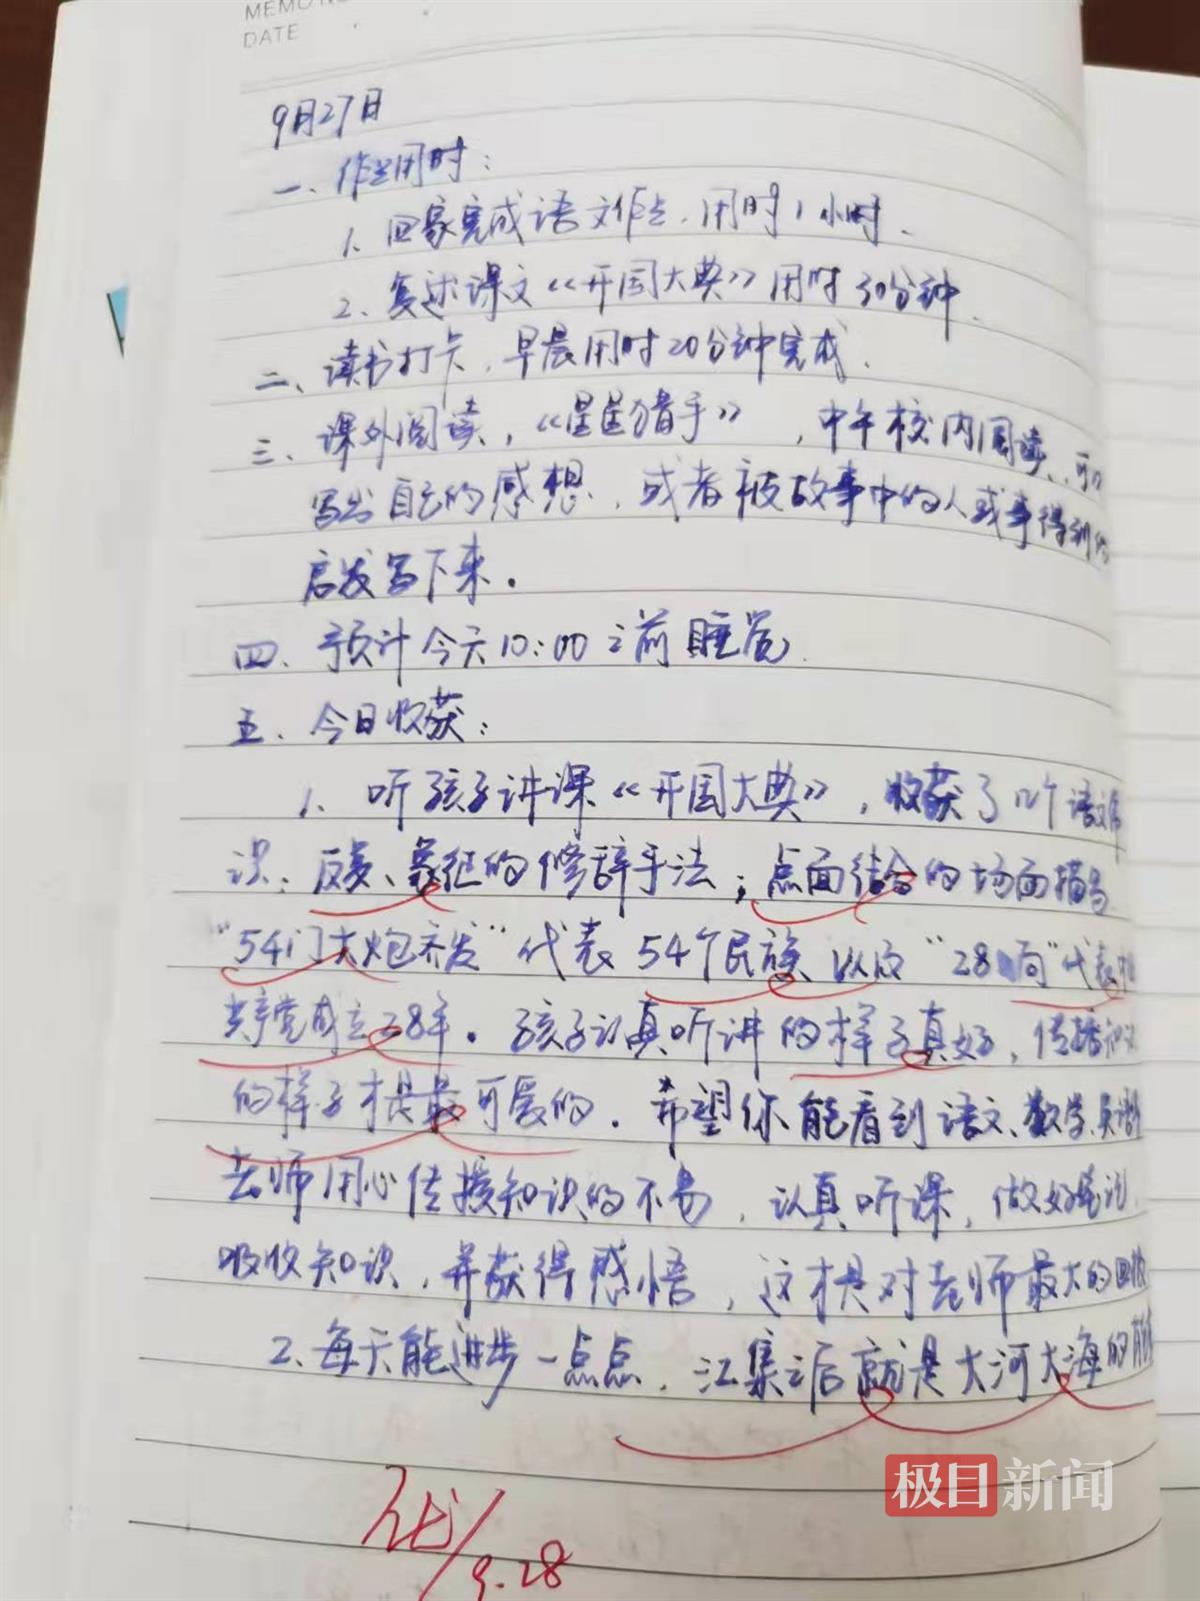 MEMO NO.
DATE
9月27日
一、作业用时：
1、回家完成语文作业，用时1小时。
2、复述课文《开国大典》用时30分钟。
二、读书打卡，早晨用时20分钟完成。
三、课外阅读，《星星猎手》，中午校内阅读，可以
写出自己的感想，或者被故事中的人或事得到的
启发写下来。
四、预计今天10:00之前睡觉
五、今日收获：
1、听孩子讲课《开国大典》，收获了几个语文知
识：反复、象征的修辞手法；点面结合的场面描写
"54门大炮齐发"代表54个民族 以及"28响"代表中
共产党成立28年。孩子认真听讲的样子真好，传播知识
的样子才是最可爱的。希望你能看到语文、数学、英语
老师用心传授知识的不易，认真听课，做好笔记，
吸收知识，并获得感悟，这才是对老师最大的回报
2、每天能进步一点点，汇集之后就是大河大海的
优/9.28
极目新闻